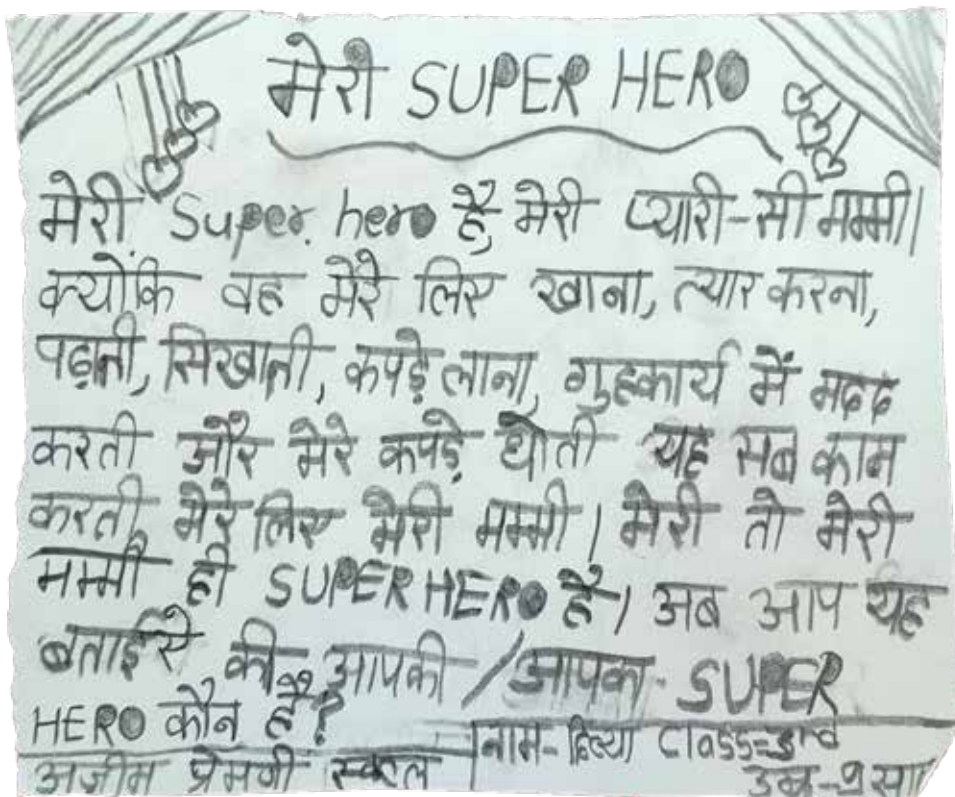 मेरी SUPER HERO
मेरी Super hero है, मेरी प्यारी-सी मम्मी।
क्योंकि वह मेरे लिए खाना, त्यार करना,
पढ़ाती, सिखाती, कपड़े लाना, गृहकार्य में मदद
करती और मेरे कपड़े धोती यह सब काम
करती मेरे लिए मेरी मम्मी। मेरी तो मेरी
मम्मी ही SUPER HERO है। अब आप यह
बताईये की आपकी/आपका SUPER
HERO कौन है?
नाम- Class=3rd
अजीम प्रेमजी स्कूल